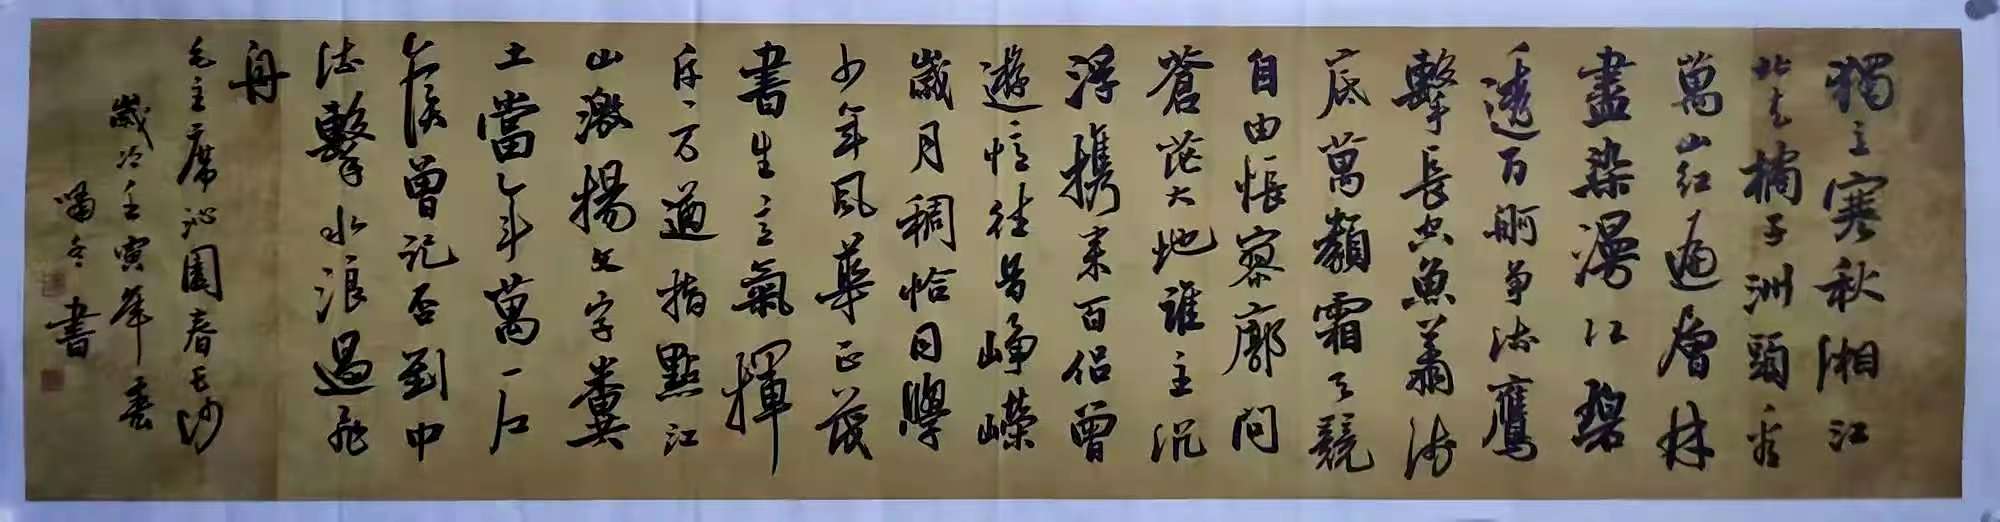 獨立寒秋湘江
北去橘子洲頭看
萬山红遍層林
盡染漫江碧
透百舸争流鷹
擊長空魚翔浅
底萬類霜天競
自由悵寥廓問
蒼茫大地誰主沉
浮携来百侣曾
遊憶往昔崢嶸
歲月稠恰同學
少年風華正茂
書生意氣揮
斥方遒指點江
山激揚文字糞
土當年萬户
侯曾記否到中
流擊水浪遏飛
舟
毛主席沁園春長沙
歲次壬寅年春
嘯冬書